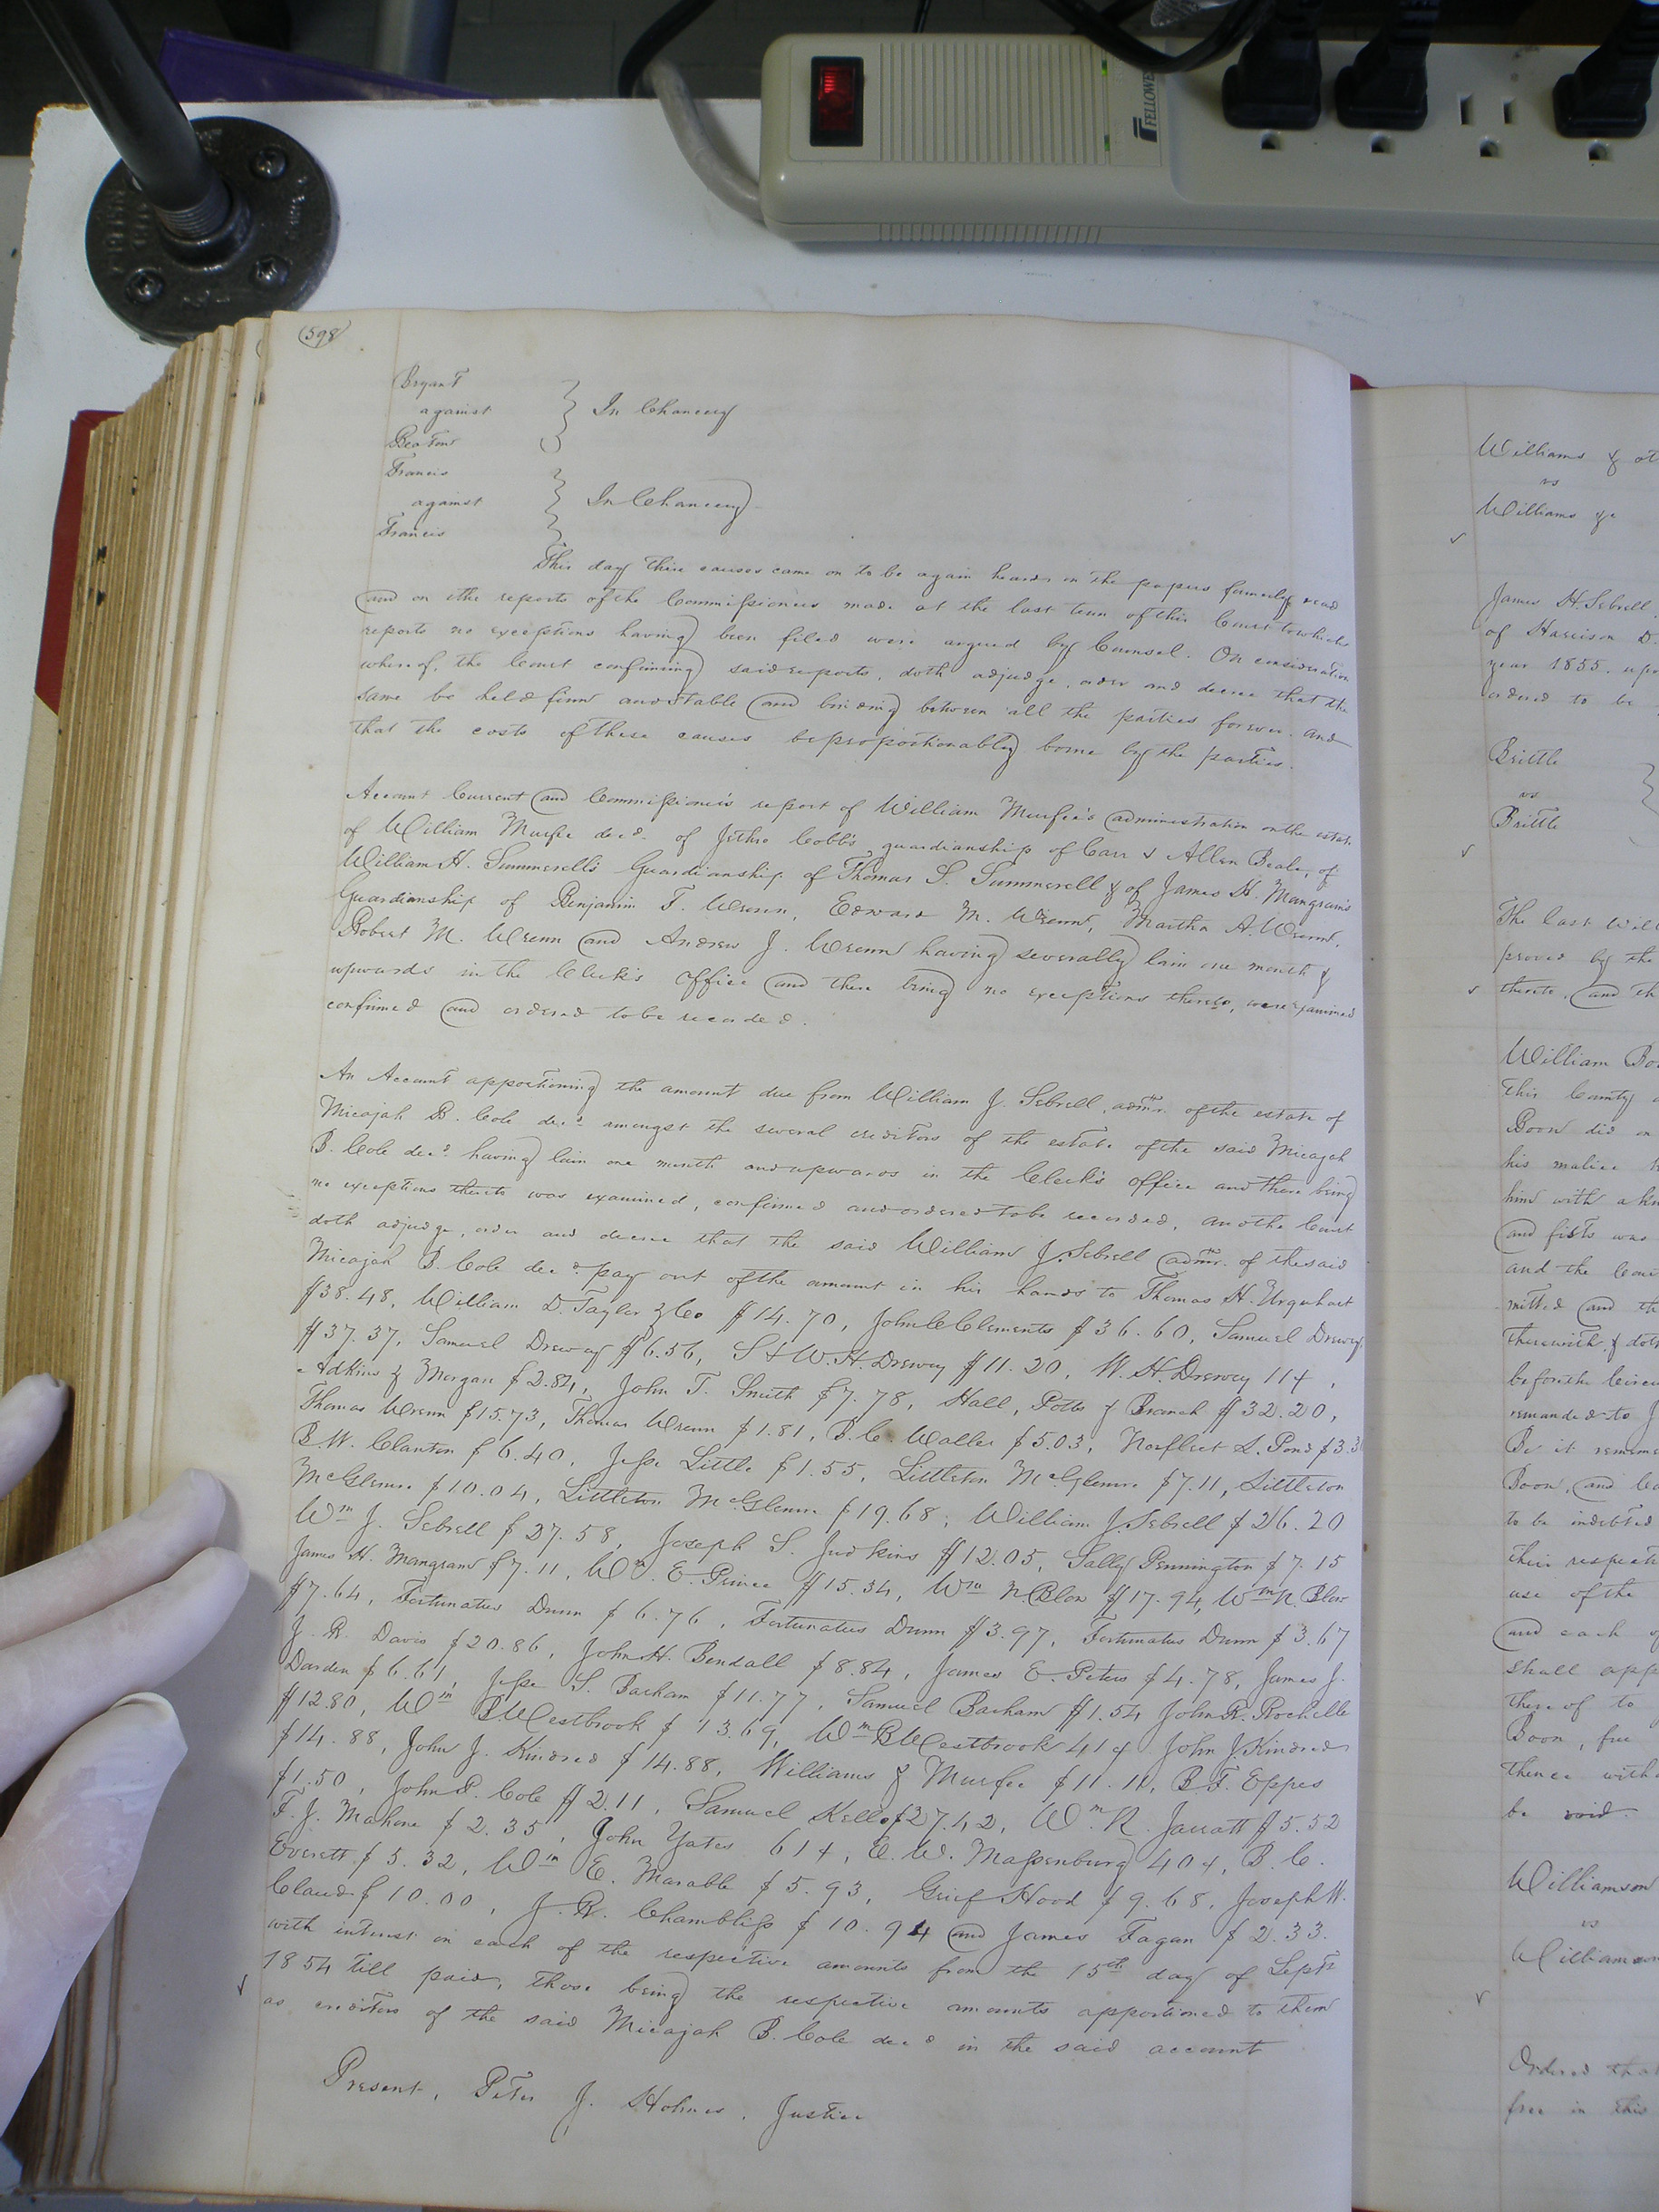 FELLOWES
598
Bryant
against } In Chancery
Beaton
Francis
against } In Chancery
Francis
This day these causes came on to be again heard on the papers formerly read
and on the reports of the Commissioners made at the last term of this Court to which
reports no exceptions having been filed were argued by Counsel. On consideration
whereof, the Court confirming said reports, doth adjudge, order and decree that the
same be held firm and stable and binding between all the parties forever. and
that the costs of these causes be proportionably borne by the parties.
Account Current and Commissioner's report of William Murfee's administration on the estate
of William Murfee decd. of Jethro Cobb's guardianship of Carr & Allen Beale, of
William H. Summerell's Guardianship of Thomas S. Summerell & of James H. Mangram's
Guardianship of Benjamin F. Wrenn, Edward M. Wrenn, Martha A. Wrenn,
Robert M. Wrenn and Andrew J. Wrenn having severally lain one month &
upwards in the Clerk's office and there being no exceptions thereto, were examined
confirmed and ordered to be recorded.
An Account apportioning the amount due from William J. Sebrell, admr. of the estate of
Micajah B. Cole decd. amongst the several creditors of the estate of the said Micajah
B. Cole decd. having lain one month and upwards in the Clerk's office and there being
no exceptions thereto was examined, confirmed and ordered to be recorded, an othe Court
doth adjudge, order and decree that the said William J. Sebrell admr. of the said
Micajah B. Cole decd. pay out of the amount in his hands to Thomas H. Urquhart
$38.48, William D. Taylor & Co $14.70, John C Clements $36.60, Samuel Drewry
$37.37, Samuel Drewry $6.56, S & W. H. Drewry $11.20, W. H. Drewry 11¢,
Adkins & Morgan $2.84, John T. Smith $7.78, Hall, Potts & Branch $32.20,
Thomas Wrenn $15.73, Thomas Wrenn $1.81, B. C. Waller $5.03, Norfleet S. Pond $3.3
B. W. Clanton $6.40, Jesse Little $1.55, Littleton McGlenn $7.11, Littleton
McGlenn $10.04, Littleton McGlenn $19.68, William J. Sebrell $26.20
Wm J. Sebrell $27.58, Joseph S. Judkins $12.05, Sally Pennington $7.15
James H. Mangram $7.11, Wm. E. Prince $15.34, Wm N. Blow $17.94, Wm N. Blow
$7.64, Fortunatus Dunn $6.76, Fortunatus Dunn $3.97, Fortunatus Dunn $3.67
J. R. Davis $20.86, John H. Bendall $8.84, James E. Peters $4.78, James J.
Darden $6.61, Jesse S. Barham $11.77, Samuel Barham $1.54 John R. Rochelle
$12.80, Wm B. Westbrook $13.69, Wm B Westbrook 41¢ John J. Kindred
$14.88, John J. Kindred $14.88, Williams & Murfee $11.11, B. F. Eppes
$1.50, John P. Cole $2.11, Samuel Kello $27.42, Wm. N. Jarratt $5.52
F. J. Mahone $2.35, John Yates 61¢, E. W. Massenburg 40¢, B. C.
Everett $5.32, Wm E. Marable $5.93, Grief Hood $9.68, Joseph W.
Claud $10.00, J. R. Chambliss $10.94 and James Fagan $2.33.
with interest on each of the respective amounts from the 15th day of Septr
1854 till paid, those being the respective amounts apportioned to them
as creditors of the said Micajah B. Cole decd in the said account
Present, Peter J. Holmes, Justice
Williams & ot
vs
Williams &c
James H. Sebrell
of Harrison D.
year 1855. upo
ordered to be
Brittle
vs
Brittle
The last Will
proved by the
thereto, and th
William Bo
this County
Boon did on
his malice
him with a kn
and fists was
and the Cou
mitted and th
therewith & doth
before the Circu
remanded to J
Be it reme
Boon, and
to be indebted
their respect
use of the
and each of
shall app
thereof to
Boon, free
thence with
be void.
Williamson
vs
Williamson
Ordered that
free in this